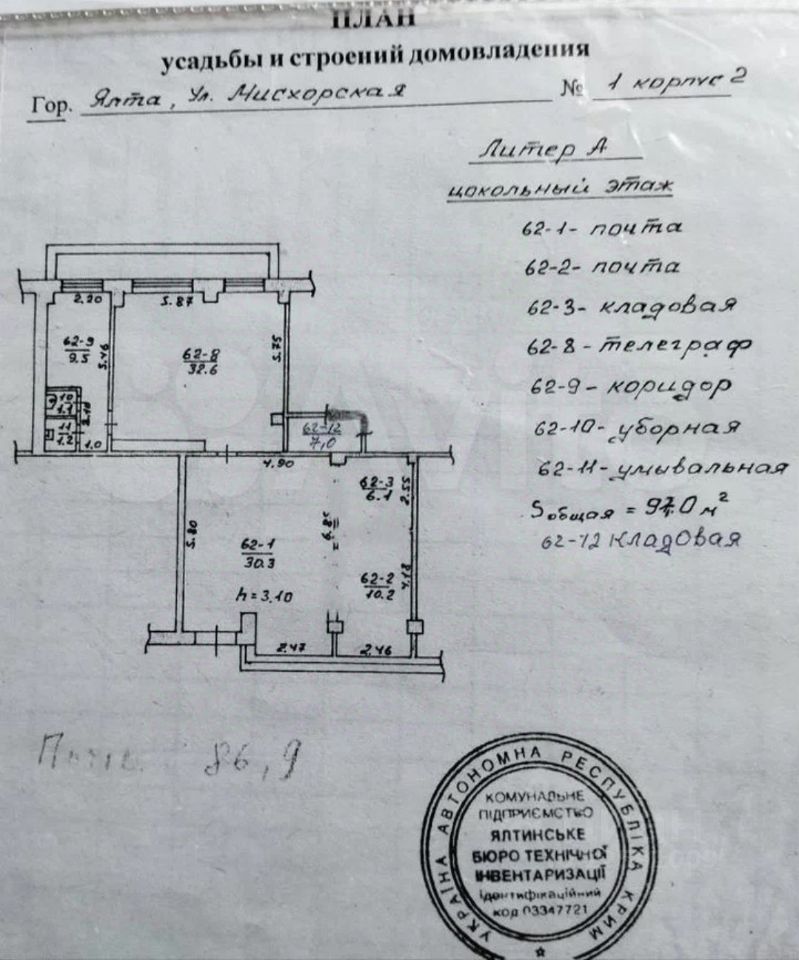 ПЛАН
усадьбы и строений домовладения
Гор. Ялта, Ул. Мисхорская № 1 корпус 2
Литер А
цокольный этаж
62-1- почта
62-2- почта
62-3- кладовая
62-8- телеграф
62-9- коридор
62-10- уборная
62-11- умывальная
S общая = 97.0 м²
62-12 кладовая
2.20
5.87
62-9
9.5
5.46
62-8
32.6
5.75
10
1.1
11
1.2
2.10
1.0
62-12
7,0
4.90
62-3
6.1
2.55
5.80
6.85
62-1
30.3
62-2
10.2
4.18
h=3.10
2.47
2.46
86,9
УКРАЇНА АВТОНОМНА РЕСПУБЛІКА КРИМ
КОМУНАЛЬНЕ
ПІДПРИЄМСТВО
ЯЛТИНСЬКЕ
БЮРО ТЕХНІЧНОЇ
ІНВЕНТАРИЗАЦІЇ
ідентифікаційний
код 03347721